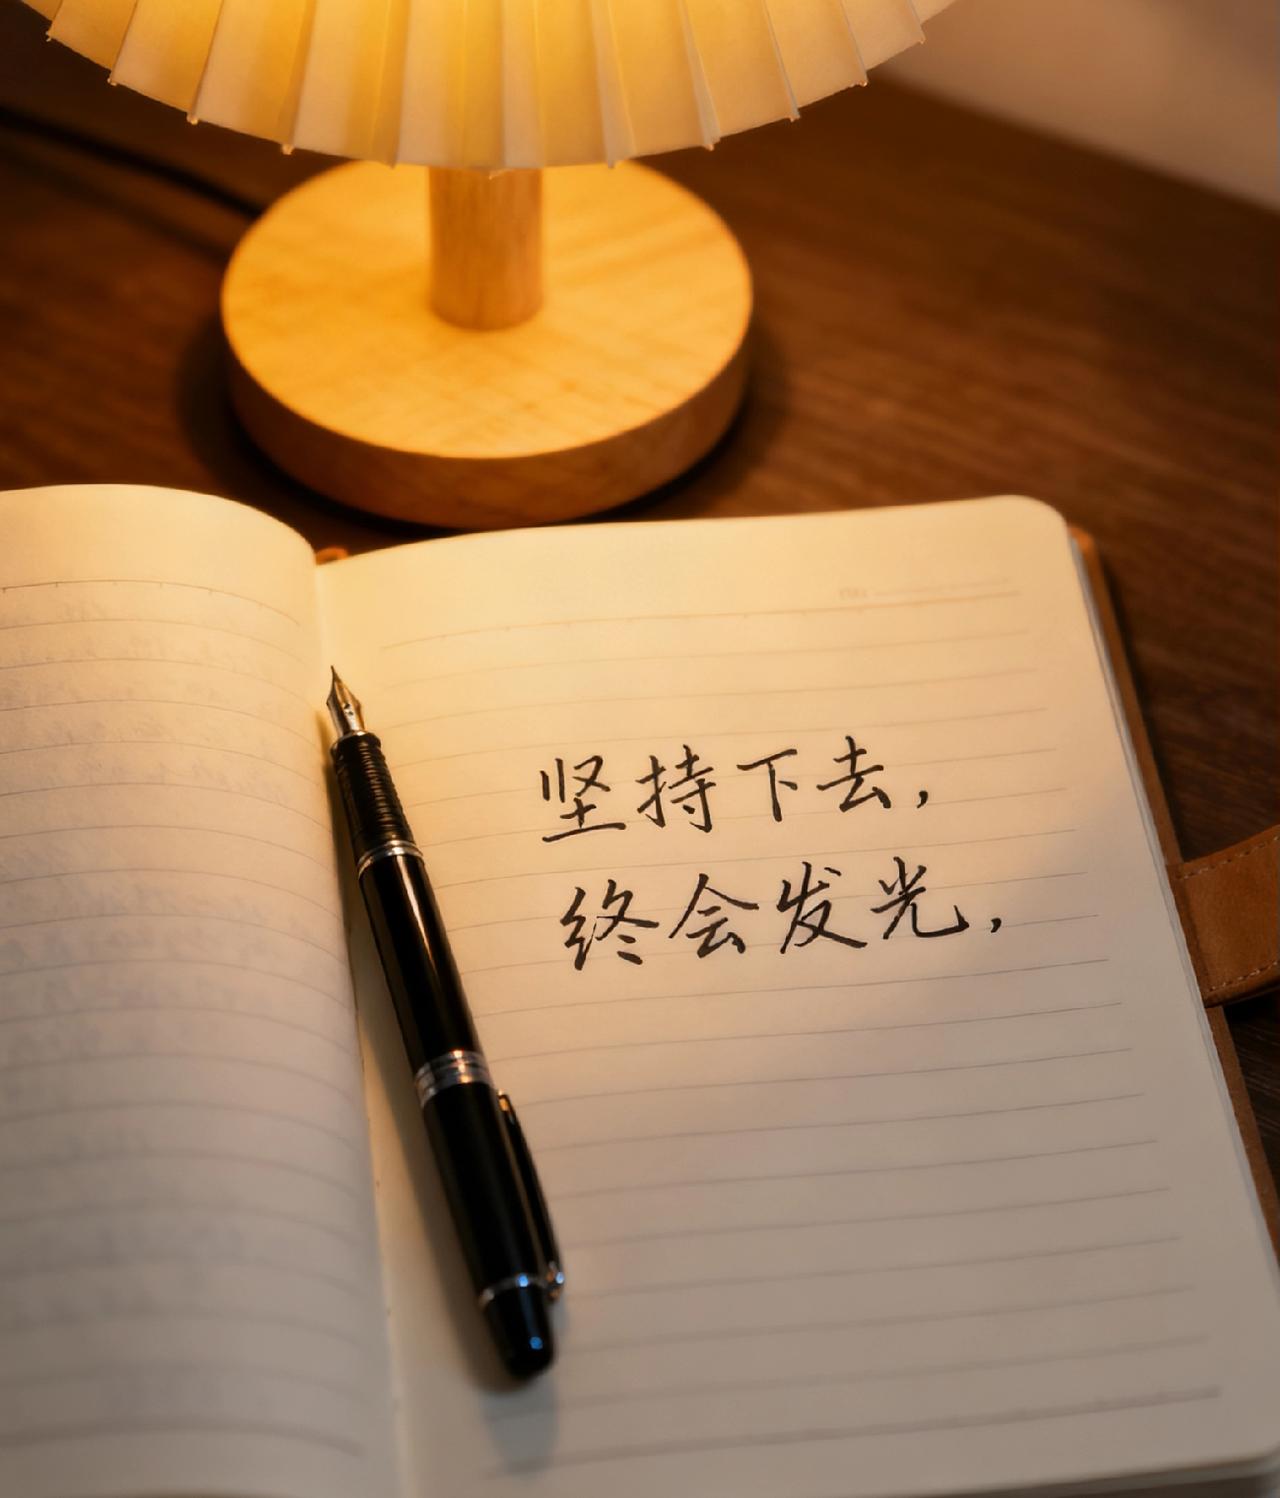 坚持下去,
终会发光,